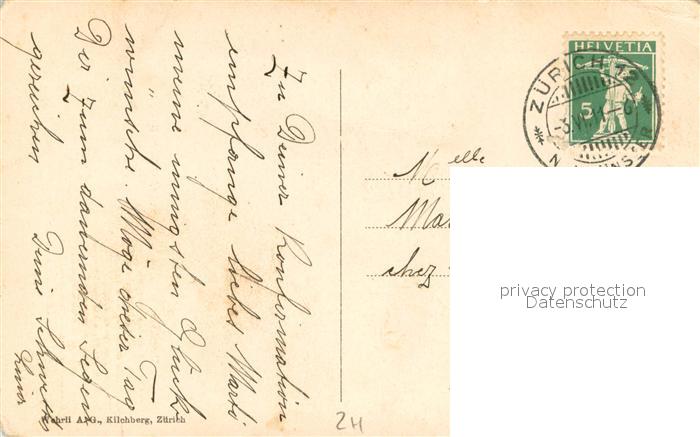 Zu Deiner Konfirmation
empfange liebes Marti
meine innigsten Glück-
wünsche. Möge dieser Tag
Dir zum dauernden Segen
gereichen
Deine Schwester
Wehrli A.-G., Kilchberg, Zürich
2H
HELVETIA
5
ZÜRICH 12
NEUMÜNSTER
Melle
Ma
chez
privacy protection
Datenschutz